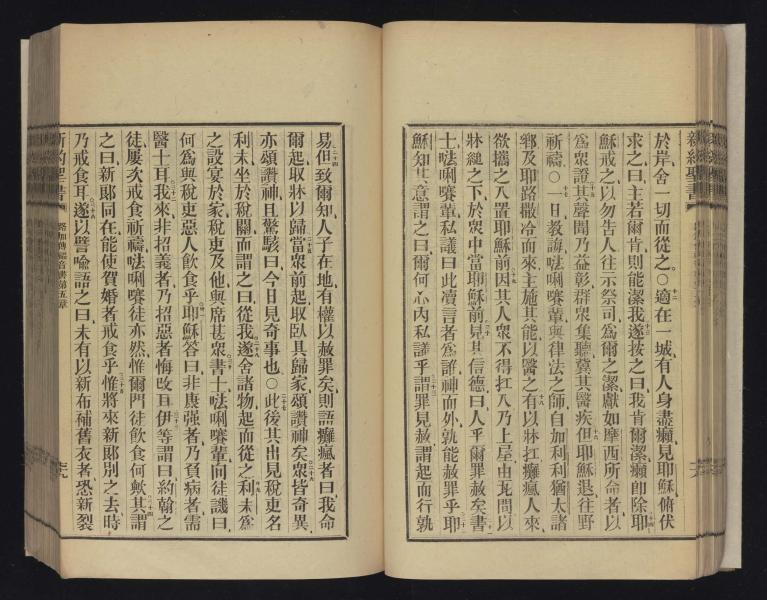 於岸舍一切而從之○適在一城有人身盡癩見耶穌俯伏
求之曰主若爾肯則能潔我遂按之曰我肯爾潔癩即除耶
穌戒之以勿告人往示祭司爲爾之潔獻如摩西所命者以
爲衆證其聲聞乃益彰群衆集聽冀其醫疾但耶穌退往野
祈禱○一日教誨𠵽唎㘔輩與律法之師自加利利猶太諸
鄉及耶路撒冷而來主施其能以醫之有以牀扛癱瘋人來
欲攜之入置耶穌前因其人衆不得扛入乃上屋由瓦間以
牀縋之下於衆中當耶穌前見其信德曰人乎爾罪赦矣書
士𠵽唎㘔輩私議曰此瀆言者爲誰神而外孰能赦罪乎耶
穌知其意謂之曰爾何心內私議乎謂罪見赦謂起而行孰
易但致爾知人子在地有權以赦罪矣則語癱瘋者曰我命
爾起取牀以歸當衆前起取臥具歸家頌讚神矣衆皆奇異
亦頌讚神且驚駭曰今日見奇事也○此後其出見稅吏名
利未坐於稅關而謂之曰從我遂舍諸物起而從之利未爲
之設宴於家稅吏及他與席甚衆書士𠵽唎㘔輩向徒譏曰
何爲與稅吏惡人飲食乎耶穌答曰非康强者乃負病者需
醫士耳我來非招義者乃招惡者悔改耳伊等謂曰約翰之
徒屢次戒食祈禱𠵽唎㘔徒亦然惟爾門徒飲食何歟其謂
之曰新郎同在能使賀婚者戒食乎惟將來新郎別之去時
乃戒食耳遂以譬喻語之曰未有以新布補舊衣者恐新裂
新約聖書
路加傳福音書第五章